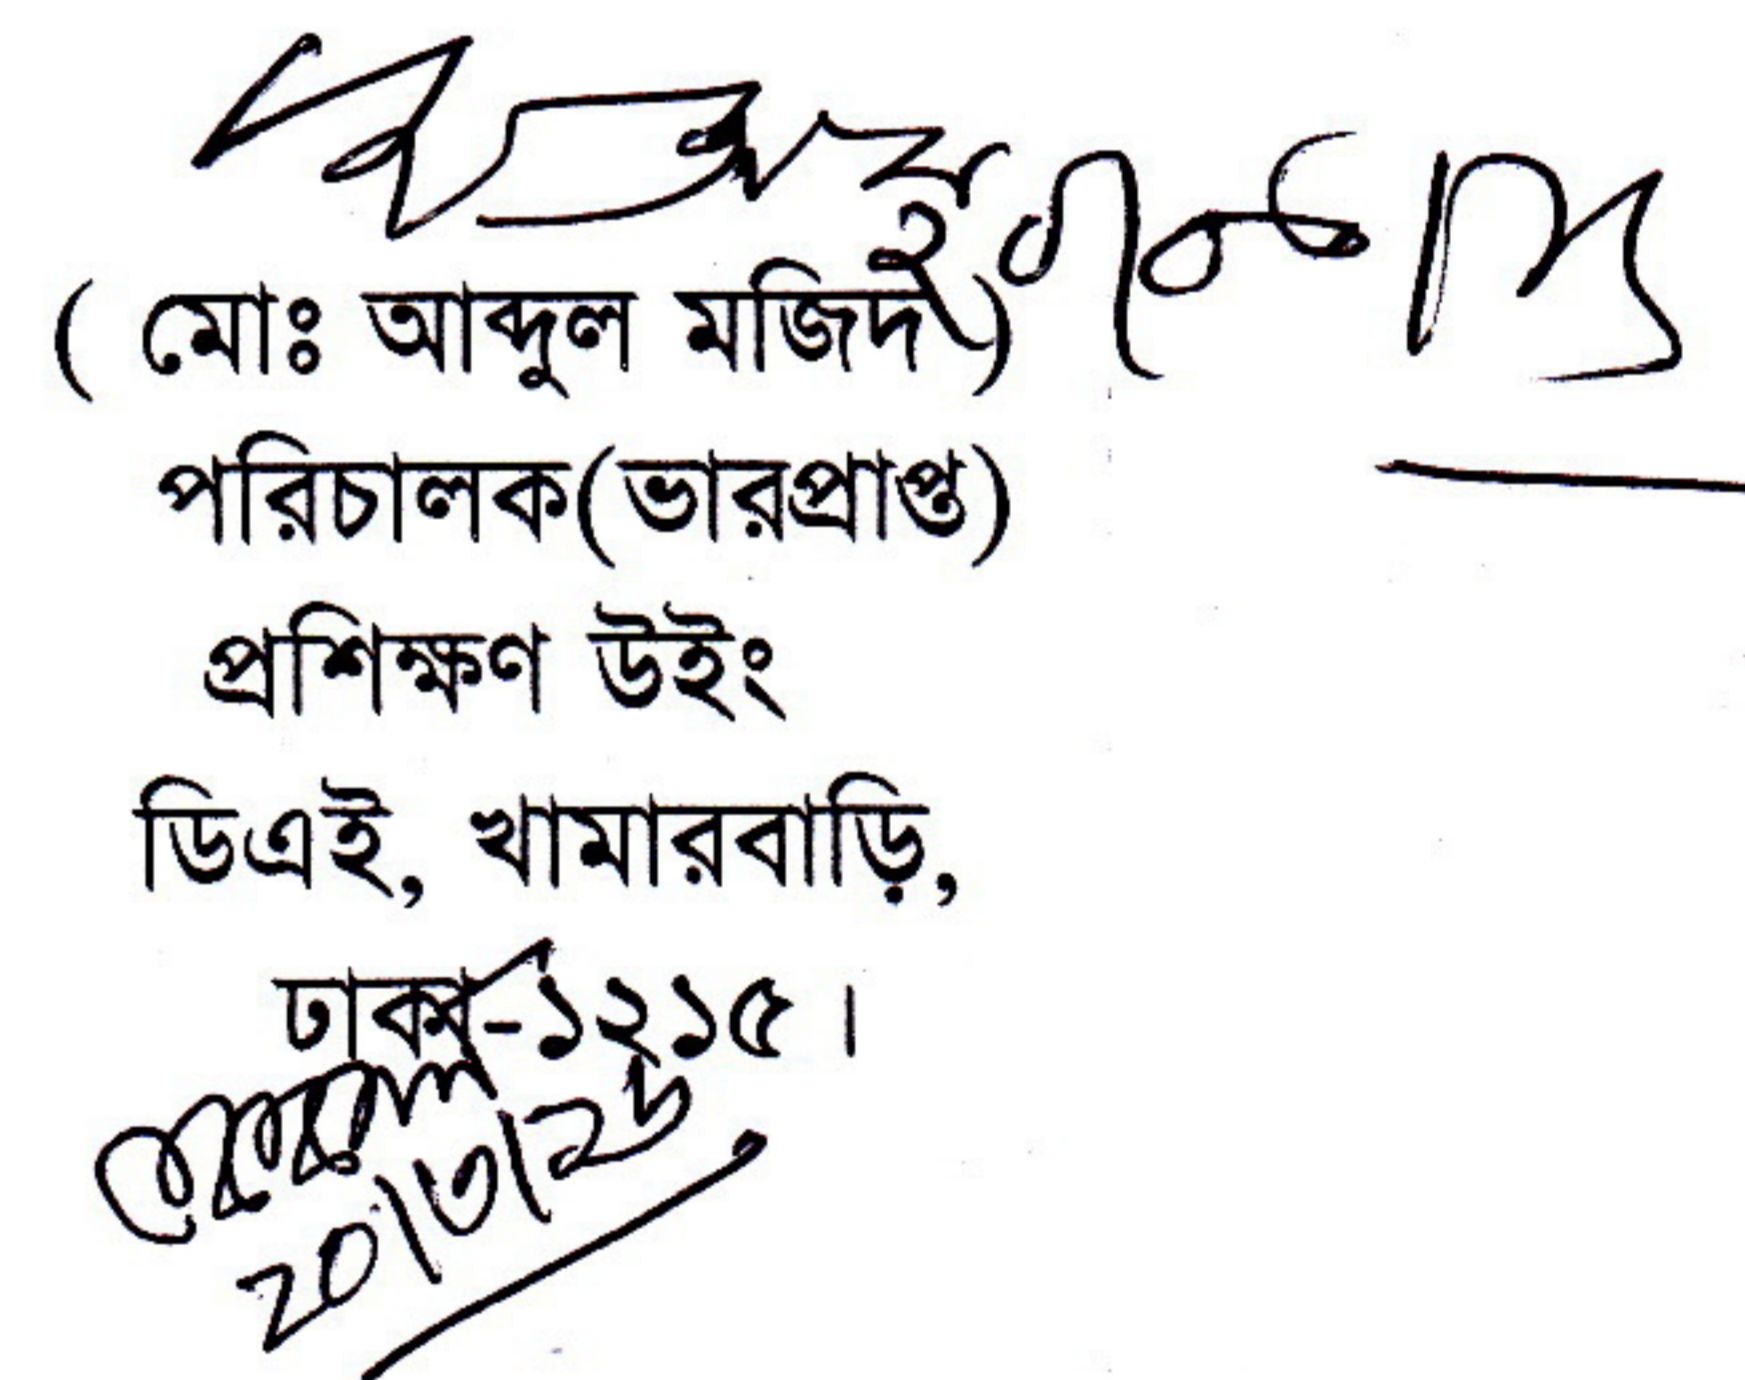 ( মোঃ আব্দুল মজিদ )
পরিচালক(ভারপ্রাপ্ত)
প্রশিক্ষণ উইং
ডিএই, খামারবাড়ি,
ঢাকা-১২১৫।